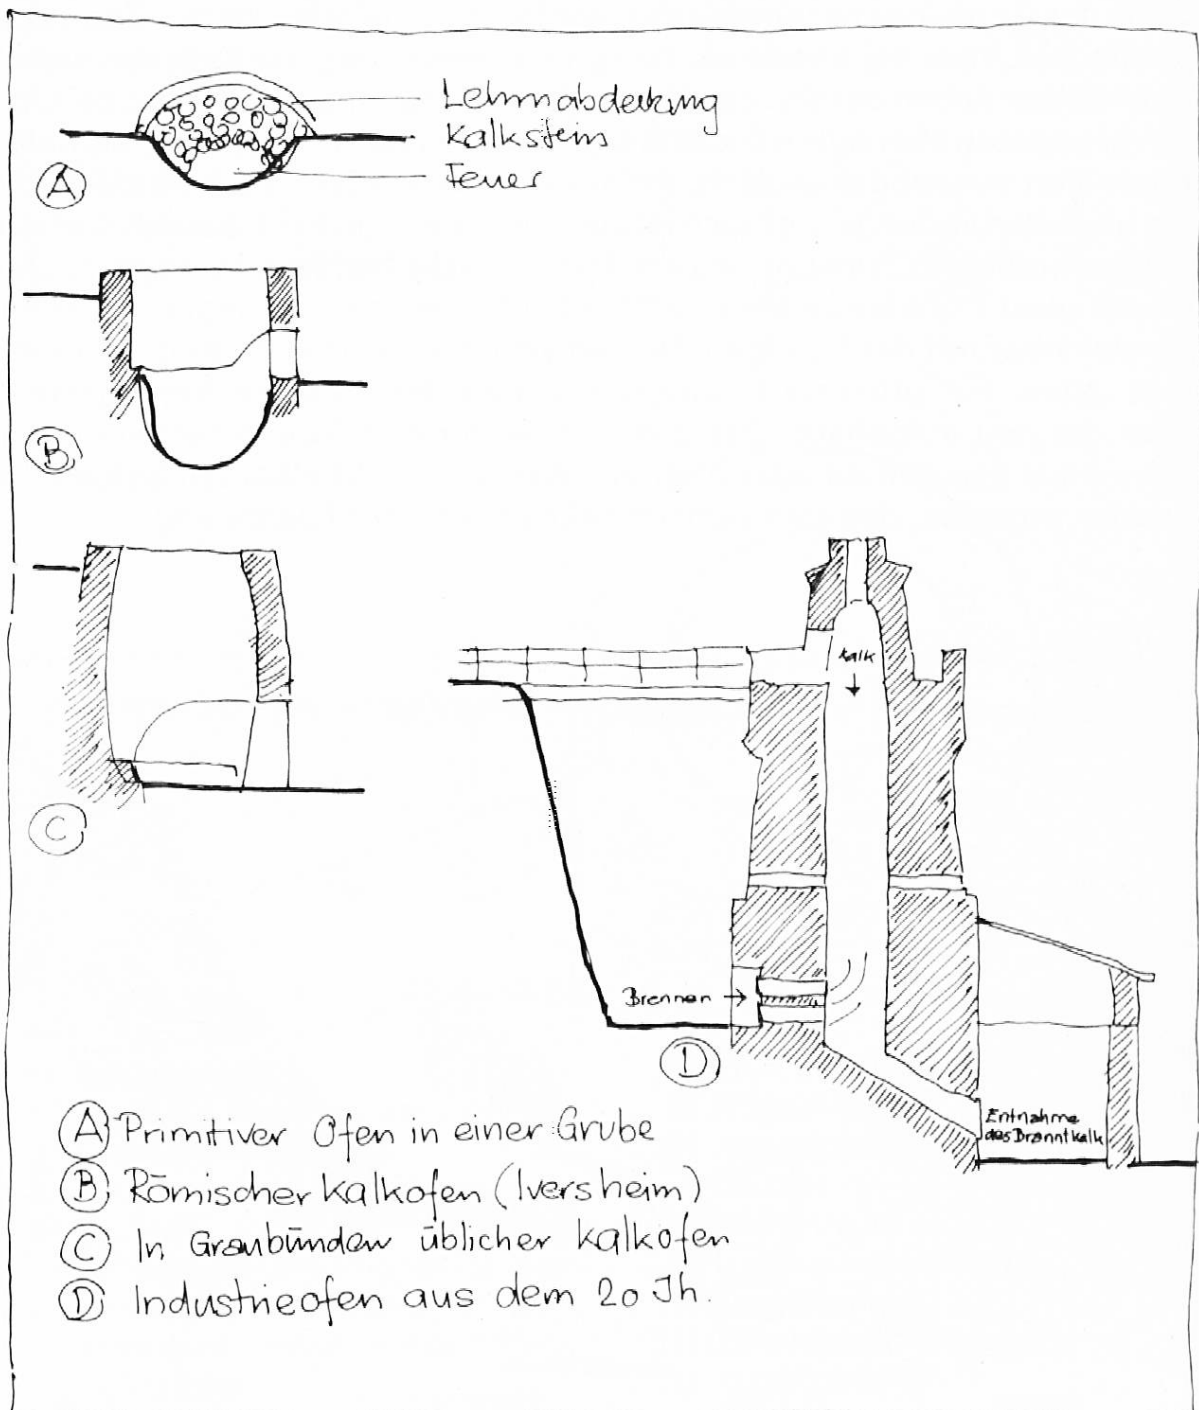 Lehmabdeckung
Kalkstein
Feuer
A
B
C
Kalk
Brennen
D
Entnahme
des Branntkalk
A Primitiver Ofen in einer Grube
B Römischer Kalkofen (Iversheim)
C In Graubünden üblicher Kalkofen
D Industrieofen aus dem 20 Jh.